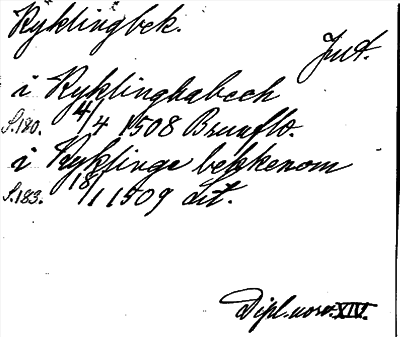 Ryklingbek.
Jmt.
i Ryklinghabech
S.180. 4/4 1508 Brunflo.
i Ryklinge bekkenom
S.183. 18/1 1509 dit.
Dipl. norv. XIV.